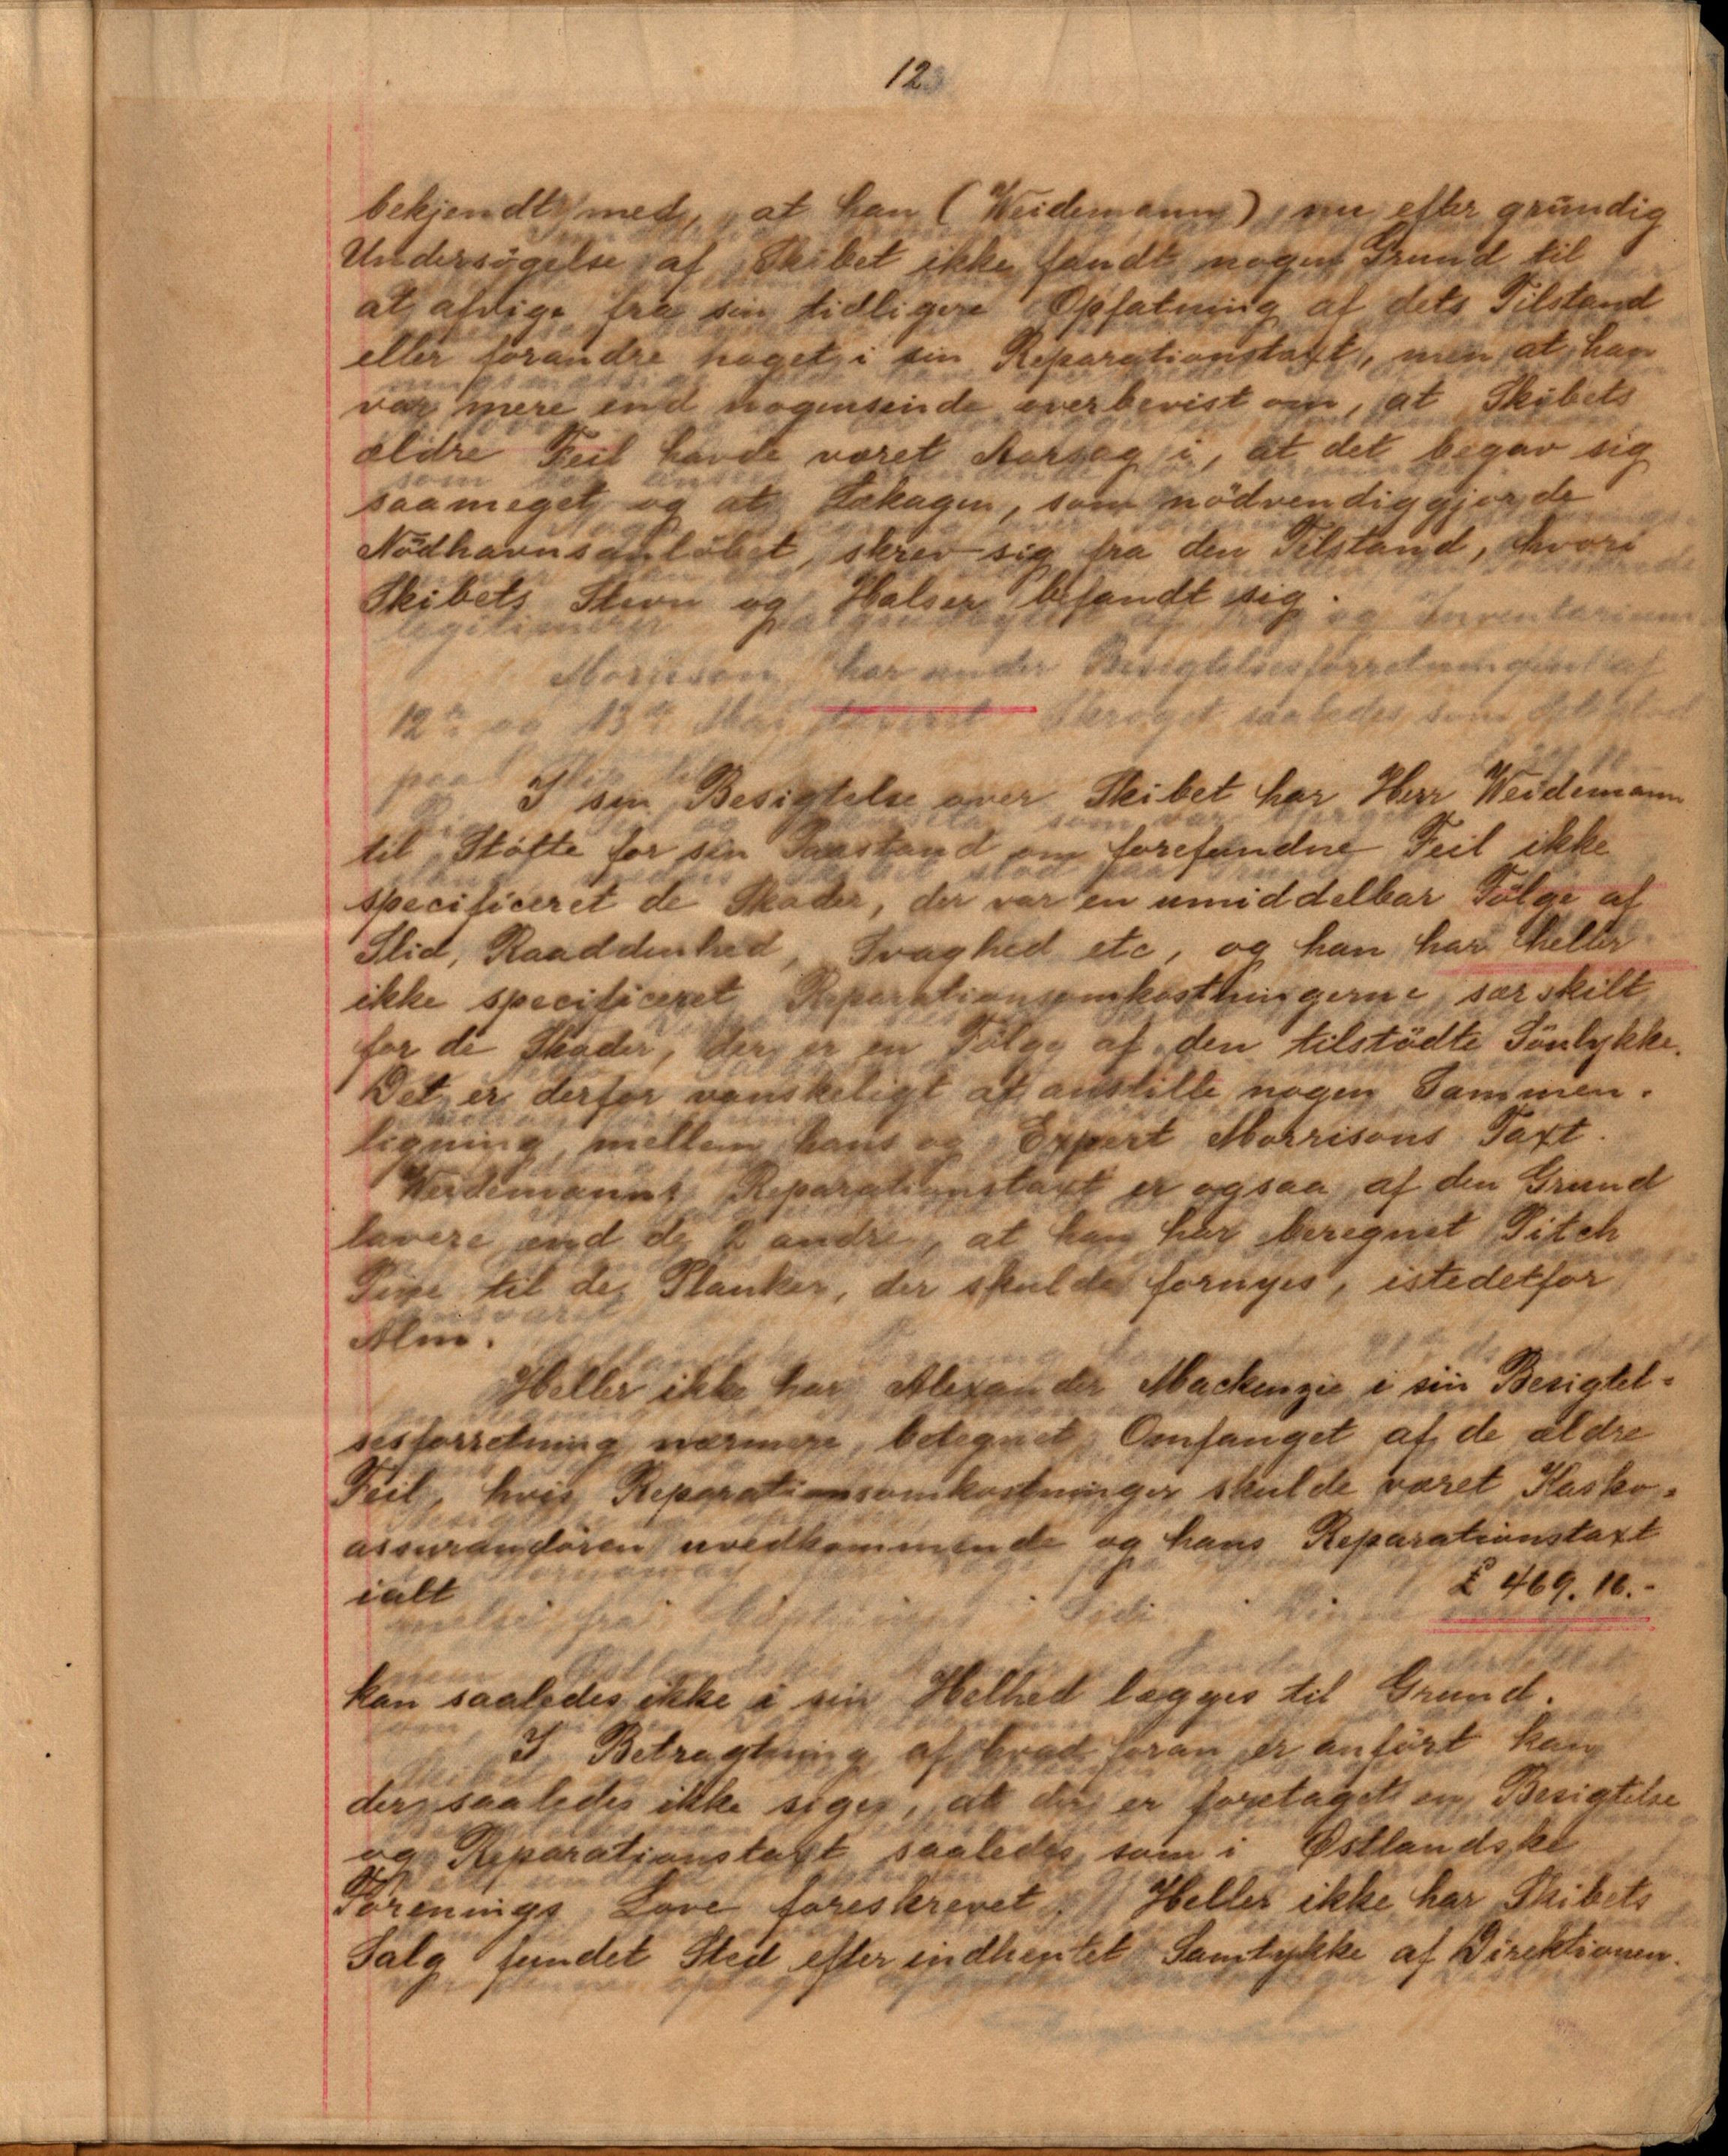 12
bekjendt med, at han (Weidemann) nu efter grundig
Undersøgelse af Skibet ikke fandt nogen Grund til
at afvige fra sin tidligere Opfatning af dets Tilstand
eller forandre noget i sin Reparationstaxt, men at han
var mere end nogensinde overbevist om, at Skibets
ældre Feil havde været Aarsag i, at det begav sig
saameget og at Lækagen, som nödvendiggjorde
Nödhavnsanløbet, skrev sig fra den Tilstand, hvori
Skibets Stevn og Halser befandt sig.
I sin Besigtelse over Skibet har Herr Weidemann
til Støtte for sin Paastand om forefundne Feil ikke
specificeret de Skader, der var en umiddelbar Følge af
Slid, Raaddenhed, Svaghed etc, og han har heller
ikke specificeret Reparationsomkostningerne særskilt
for de Skader, der er en Følge af den tilstödte Söulykke.
Det er derfor vanskeligt at anstille nogen Sammen-
ligning mellem hans og Expert Morrisons Taxt.
Weidemanns Reparationstaxt er ogsaa af den Grund
lavere end de 2 andre, at han har beregnet Pitch
Pine til de Planker, der skulde fornyes, istedetfor
Alm.
Heller ikke har Alexander Mackenzie i sin Besigtel=
sesforretning nærmere betegnet Omfanget af de ældre
Feil, hvis Reparationsomkostninger skulde været Kasko=
assurandøren uvedkommende og hans Reparationstaxt
ialt £ 469.10.-
kan saaledes ikke i sin Helhed lægges til Grund.
I Betragtning af hvad foran er anført kan
der saaledes ikke siges, at der er foretaget en Besigtelse
og Reparationstaxt saaledes som i Østlandske
Forenings Love foreskrevet. Heller ikke har Skibets
Salg fundet Sted efter indhentet Samtykke af Direktionen.